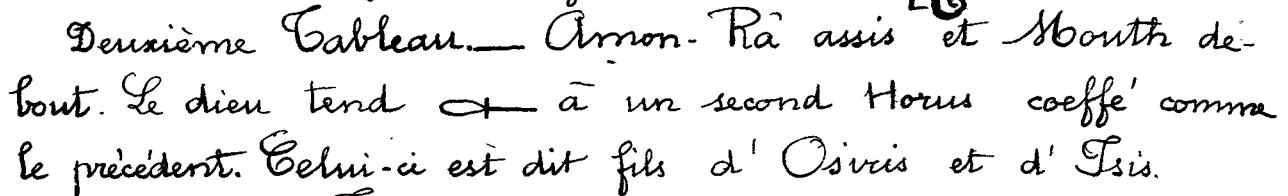 Deuxième Tableau.— Amon-Râ assis et Mouth de-
bout. Le dieu tend à un second Horus coeffé comme
le précédent. Celui-ci est dit fils d'Osiris et d'Isis.